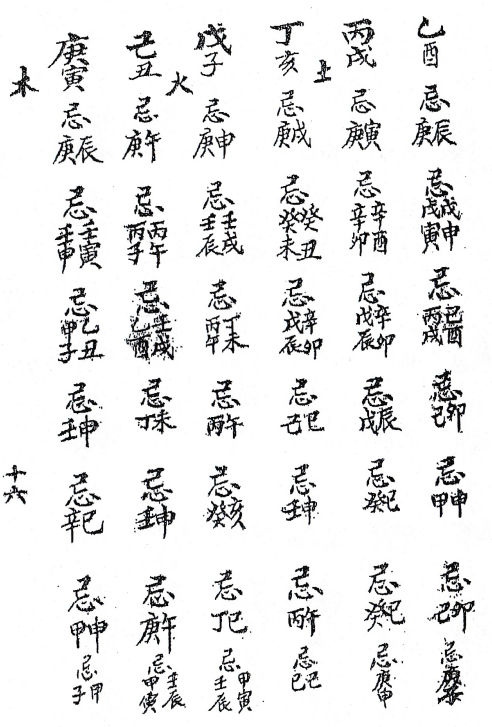 乙酉 忌庚辰 忌戊申戊寅 忌己酉丙戌 忌己卯 忌甲申 忌己卯 忌
丙戌 忌庚寅 忌辛酉辛卯 忌辛卯戊辰 忌戊辰 忌癸巳 忌癸巳 忌庚申
土
丁亥 忌庚戌 忌癸丑癸未 忌辛卯戊辰 忌己巳 忌壬申 忌丙午 忌
戊子 忌庚申 忌壬戌壬辰 忌丁未丙午 忌丙午 忌癸亥 忌丁巳 忌甲寅壬辰
火
己丑 忌庚午 忌丙午丙子 忌壬戌乙酉 忌丁未 忌壬申 忌庚午 忌壬辰甲寅
庚寅 忌庚辰 忌壬寅壬申 忌乙丑甲子 忌壬申 忌辛巳 忌甲申 忌甲子
木 十六